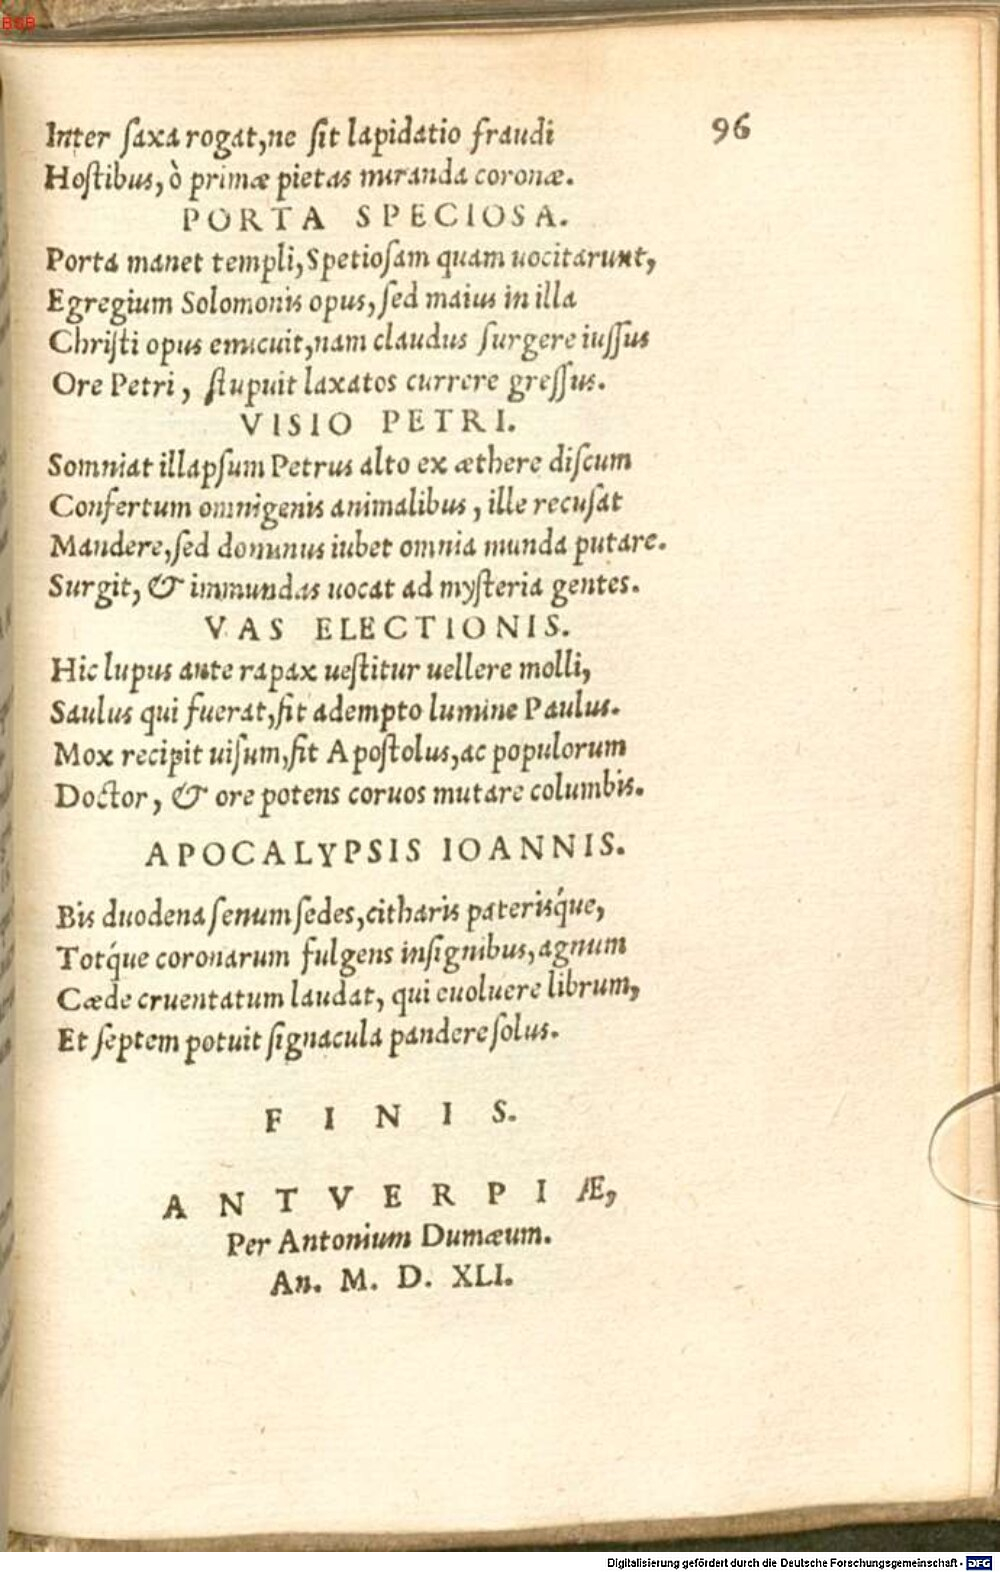 BSB
Inter ſaxa rogat, ne ſit lapidatio fraudi 96
Hoſtibus, ò primæ pietas miranda coronæ.
PORTA SPECIOSA.
Porta manet templi, Spetioſam quam uocitarunt,
Egregium Solomonis opus, ſed maius in illa
Chriſti opus emicuit, nam claudus ſurgere iuſſus
Ore Petri, ſtupuit laxatos currere greſſus.
VISIO PETRI.
Somniat illapſum Petrus alto ex æthere diſcum
Confertum omnigenis animalibus, ille recuſat
Mandere, ſed dominus iubet omnia munda putare.
Surgit, & immundas uocat ad myſteria gentes.
VAS ELECTIONIS.
Hic lupus ante rapax ueſtitur uellere molli,
Saulus qui fuerat, fit adempto lumine Paulus.
Mox recipit uiſum, fit Apoſtolus, ac populorum
Doctor, & ore potens coruos mutare columbis.
APOCALYPSIS IOANNIS.
Bis duodena ſenum ſedes, citharis pateriſq́ue,
Totq́ue coronarum fulgens inſignibus, agnum
Cæde cruentatum laudat, qui euoluere librum,
Et ſeptem potuit ſignacula pandere ſolus.
F I N I S.
A N T V E R P I Æ,
Per Antonium Dumæum.
An. M. D. XLI.
Digitalisierung gefördert durch die Deutsche Forschungsgemeinschaft - DFG